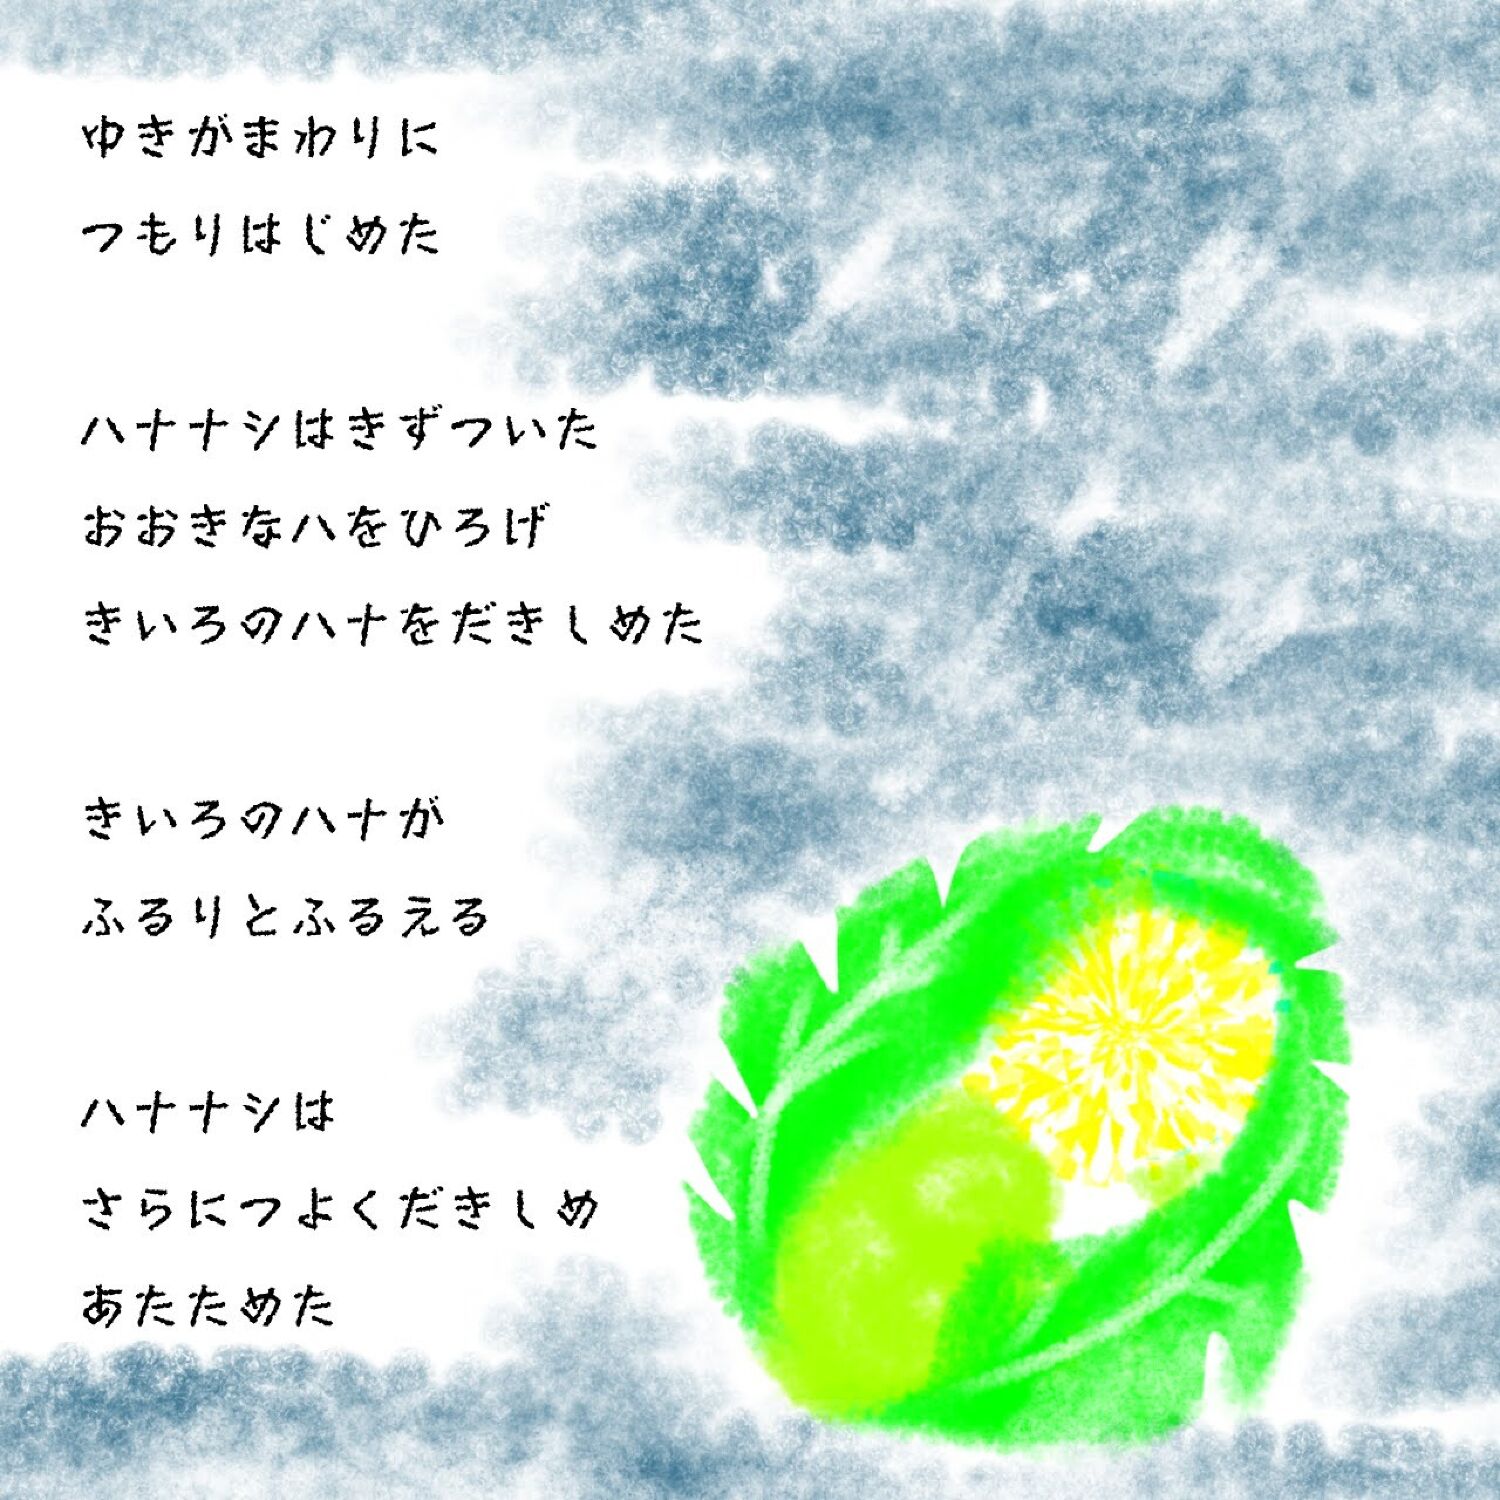 ゆきがまわりに
つもりはじめた
ハナナシはきずついた
おおきなハをひろげ
きいろのハナをだきしめた
きいろのハナが
ふるりとふるえる
ハナナシは
さらにつよくだきしめ
あたためた